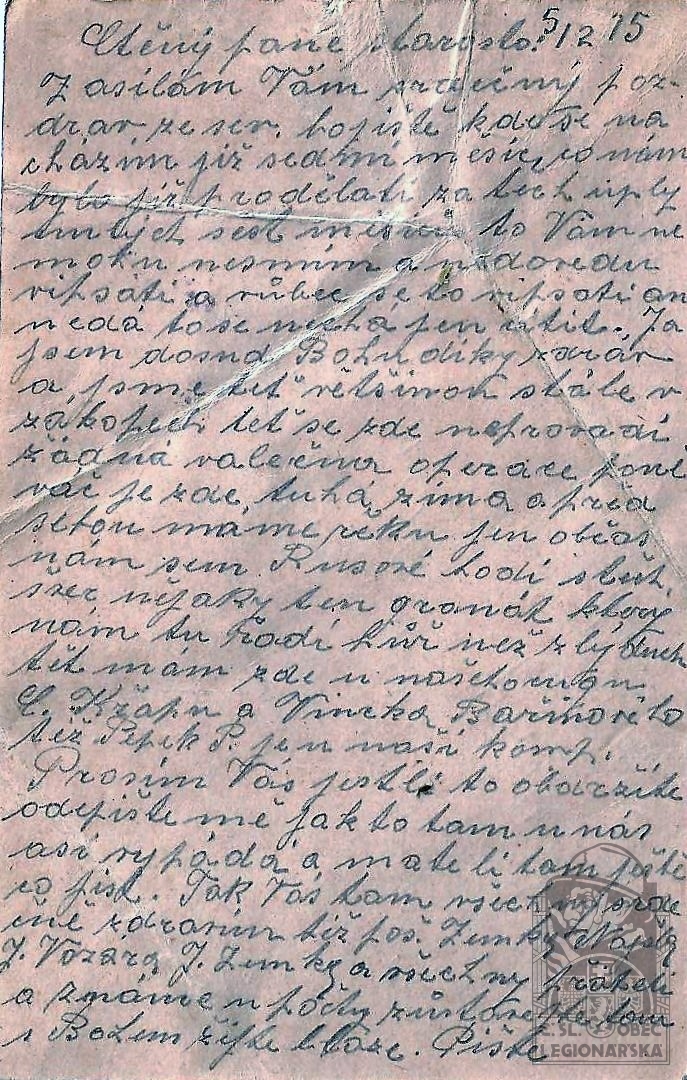 Ctěný pane starosto! 5/12 15
Zasílám Vám srdečný poz-
drav ze sev. bojiště kde se na
cházím již sedmí měsíc, co nám
bylo již prodělati za tech uply
nulých šest měsíců to Vám ne
mohu nesmím a nedovedu
vipsáti a vůbec se to vipsati an
nedá to se nechá jen cítit. Ja
jsem dosud Bohu díky zdráv
a jsme teť většinou stále v
zákopech teť se zde neprovádí
žádná valečna operace poně
vač je zde tuhá zima a před
sebou máme řeku jen občas
nám sem Rusové hodí
nějaky ten granát ktory
nám tu řadí hůř než zlý duch
teť mám zde u našeho cugu
C. Kžápu a Vincka Bařinového
též Pepik P. je u naší komp.
Prosím Vás jestli to obdržíte
odepište mě jak to tam u nás
asi vypádá a mate li tam ještě
co pist. Tak Vás tam všechny srde
čně zdravím též poš. Zemky
J. Vozára, J. Zemka a všechny přáteli
a známe u počty zůstávejte tam
s Bohem žijte blaze. Pište
Č. SL. OBEC
LEGIONÁŘSKÁ